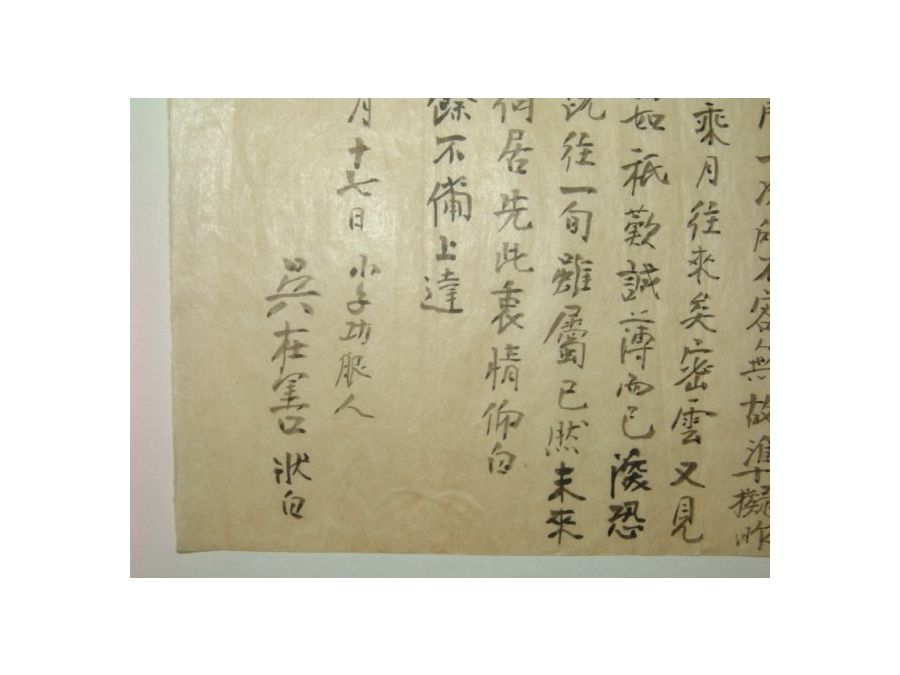 一次所不容無故準擬昨
乘月往來矣密雲又見
茹祇歎誠薄而已深恐
既往一旬雖屬已然未來
何居先此衷情仰白
餘不備上達
月十七日 小子功服人
吳在善 狀白